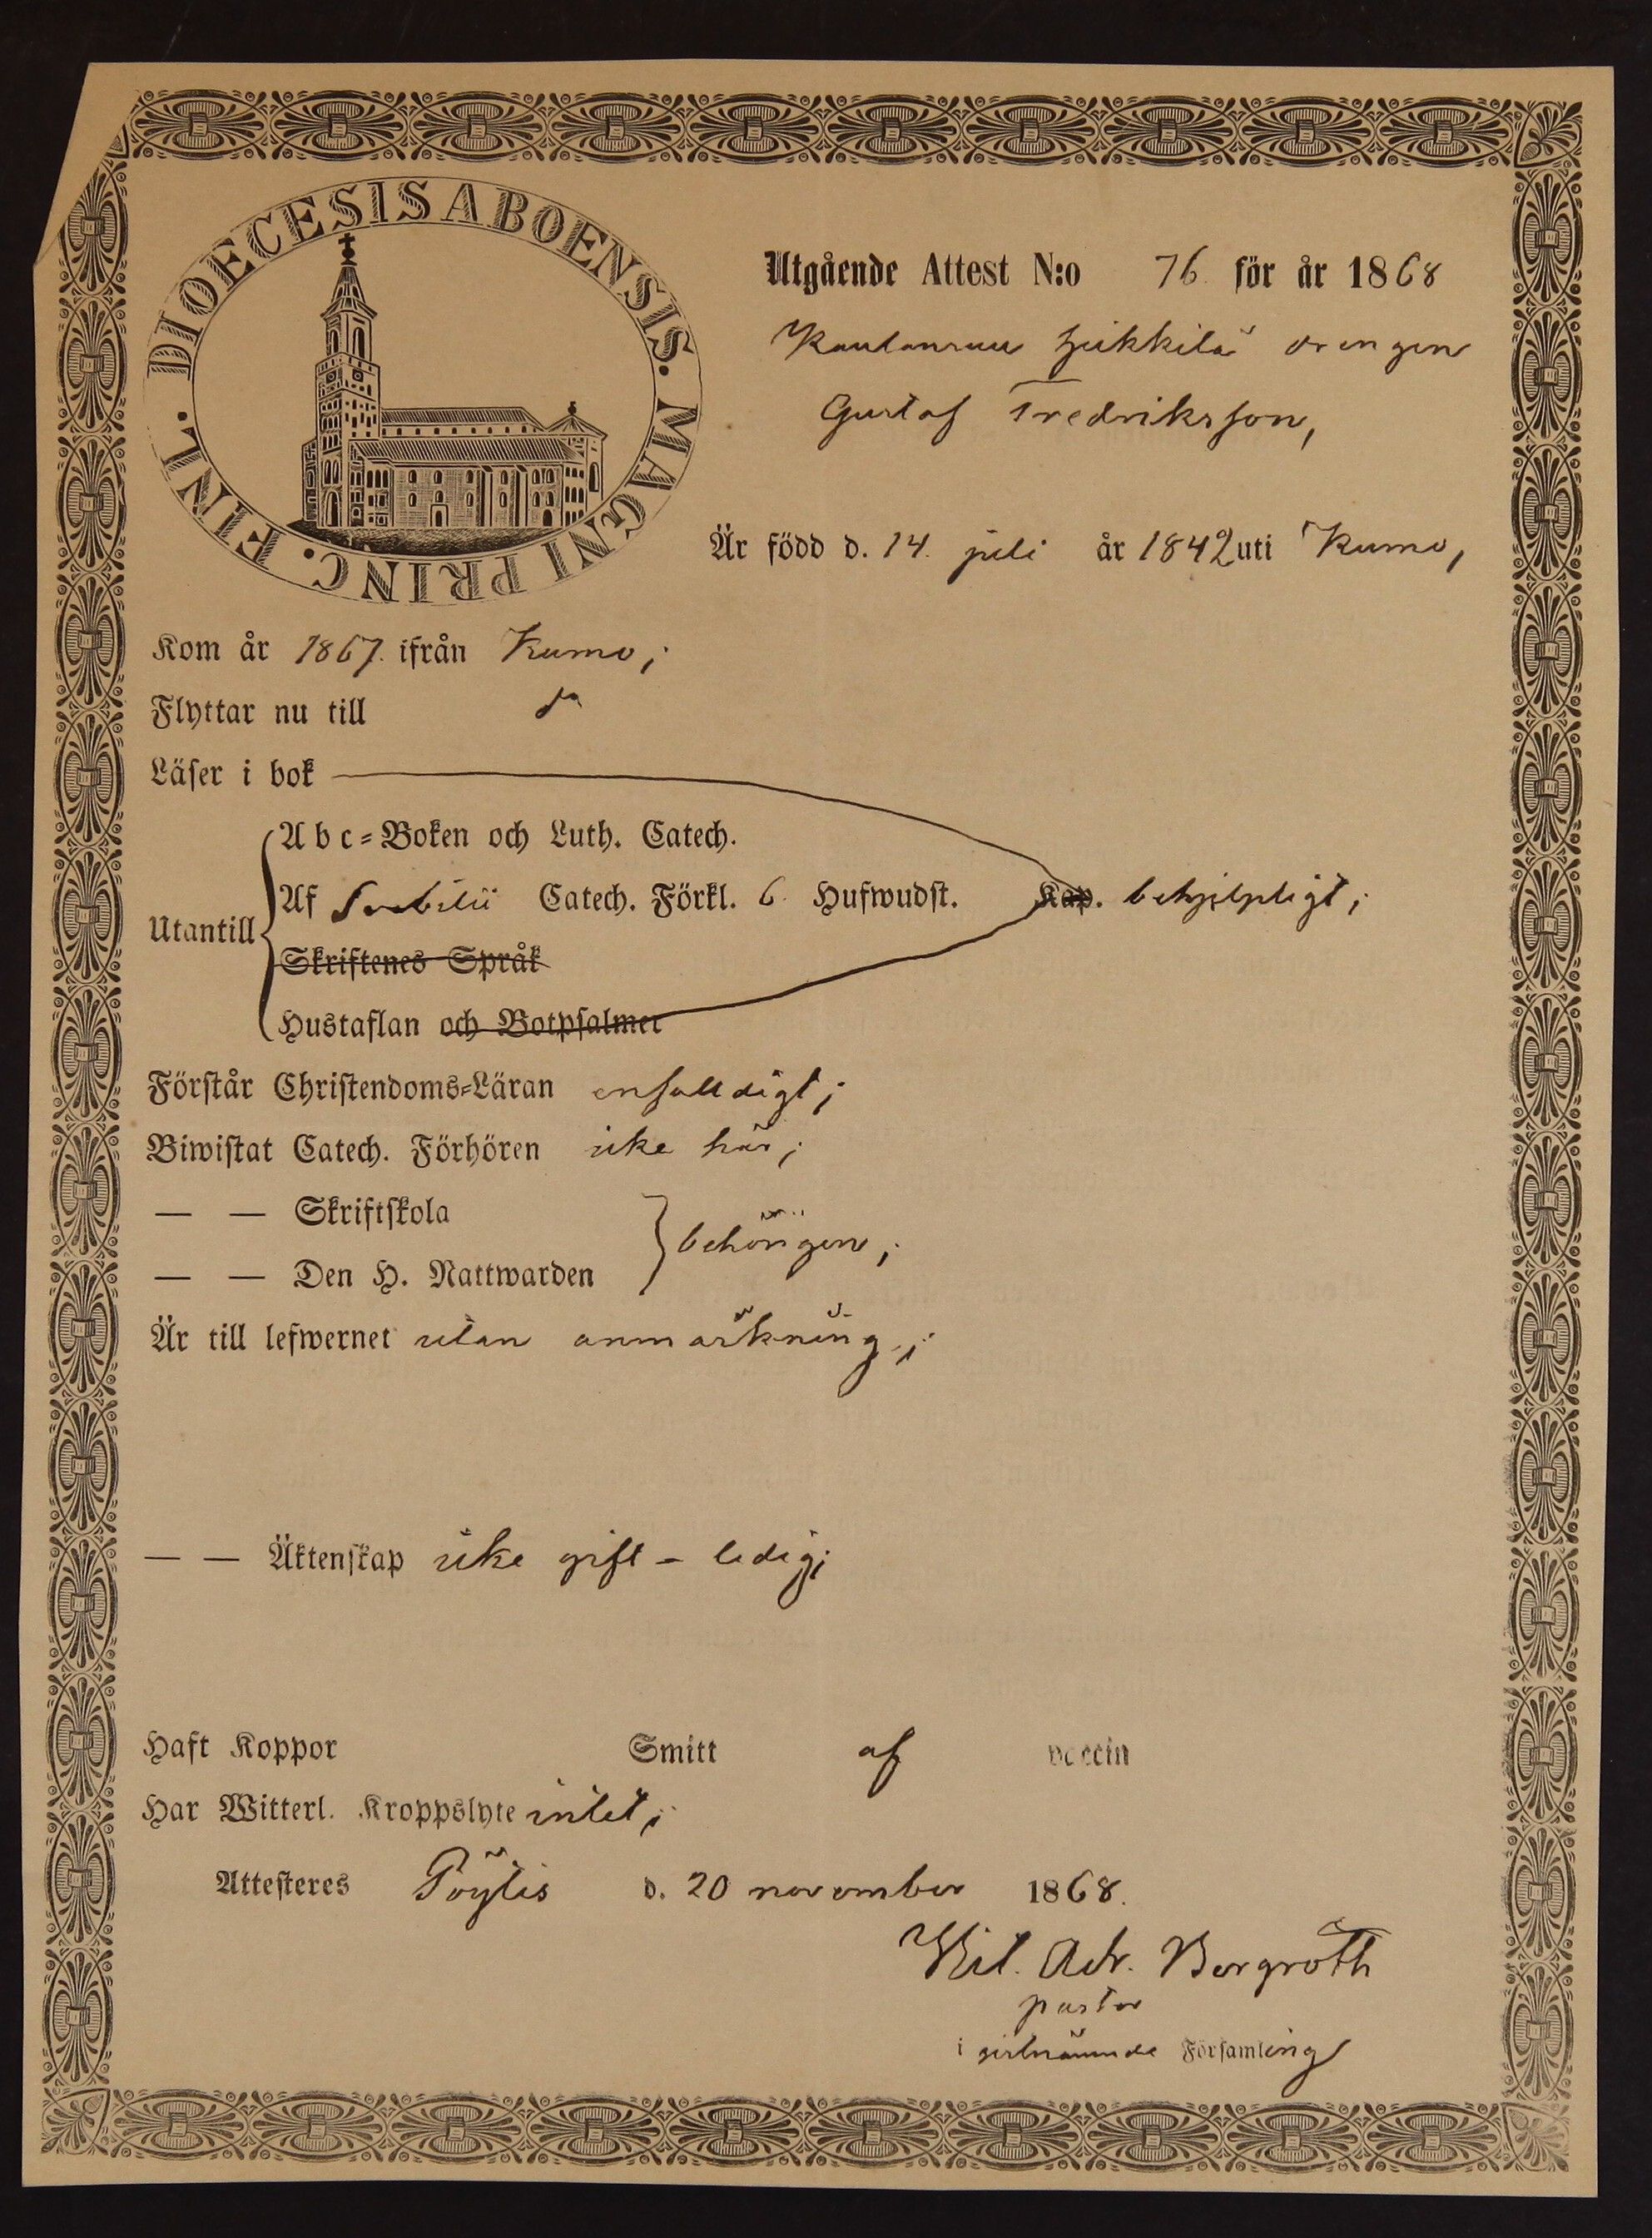 DIOECESIS ABOENSIS. MAGNI PRINC. FINL.
Utgående Attest N:o 76. för år 1868
Heikkilä drengen
Gustaf Fredriksson,
Är född d. 14. juli år 1842 uti Kumo,
Kom år 1867. ifrån Kumo;
Flyttar nu till do
Läser i bok
Abc-Boken och Luth. Catech.
Utantill
Af Svebilii Catech. Förkl. 6. Hufwudst. Kap. behjelpligt;
Skriftenes Språk
Hustaflan och Botpsalmer
Förstår Christendoms-Läran enfalldigt;
Biwistat Catech. Förhören icke här;
— — Skriftskola
behörigen;
— — Den H. Nattwarden
Är till lefwernet utan anmärkning;
— — Äktenskap icke gift - ledig;
Haft Koppor Smitt af vaccin
Har Witterl. Kroppslyte intet;
Attesteres Pöytis d. 20 november 1868.
Wil. Adr. Bergroth
pastor
i sistnämnde Församling